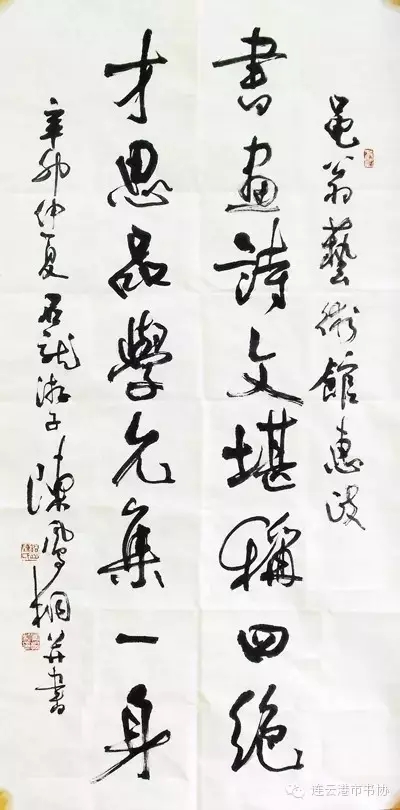 黾翁藝術館惠
書畫詩文堪稱四絶
才思品學允集一身
辛卯仲夏 子陳鳳桐并書
连云港市书协